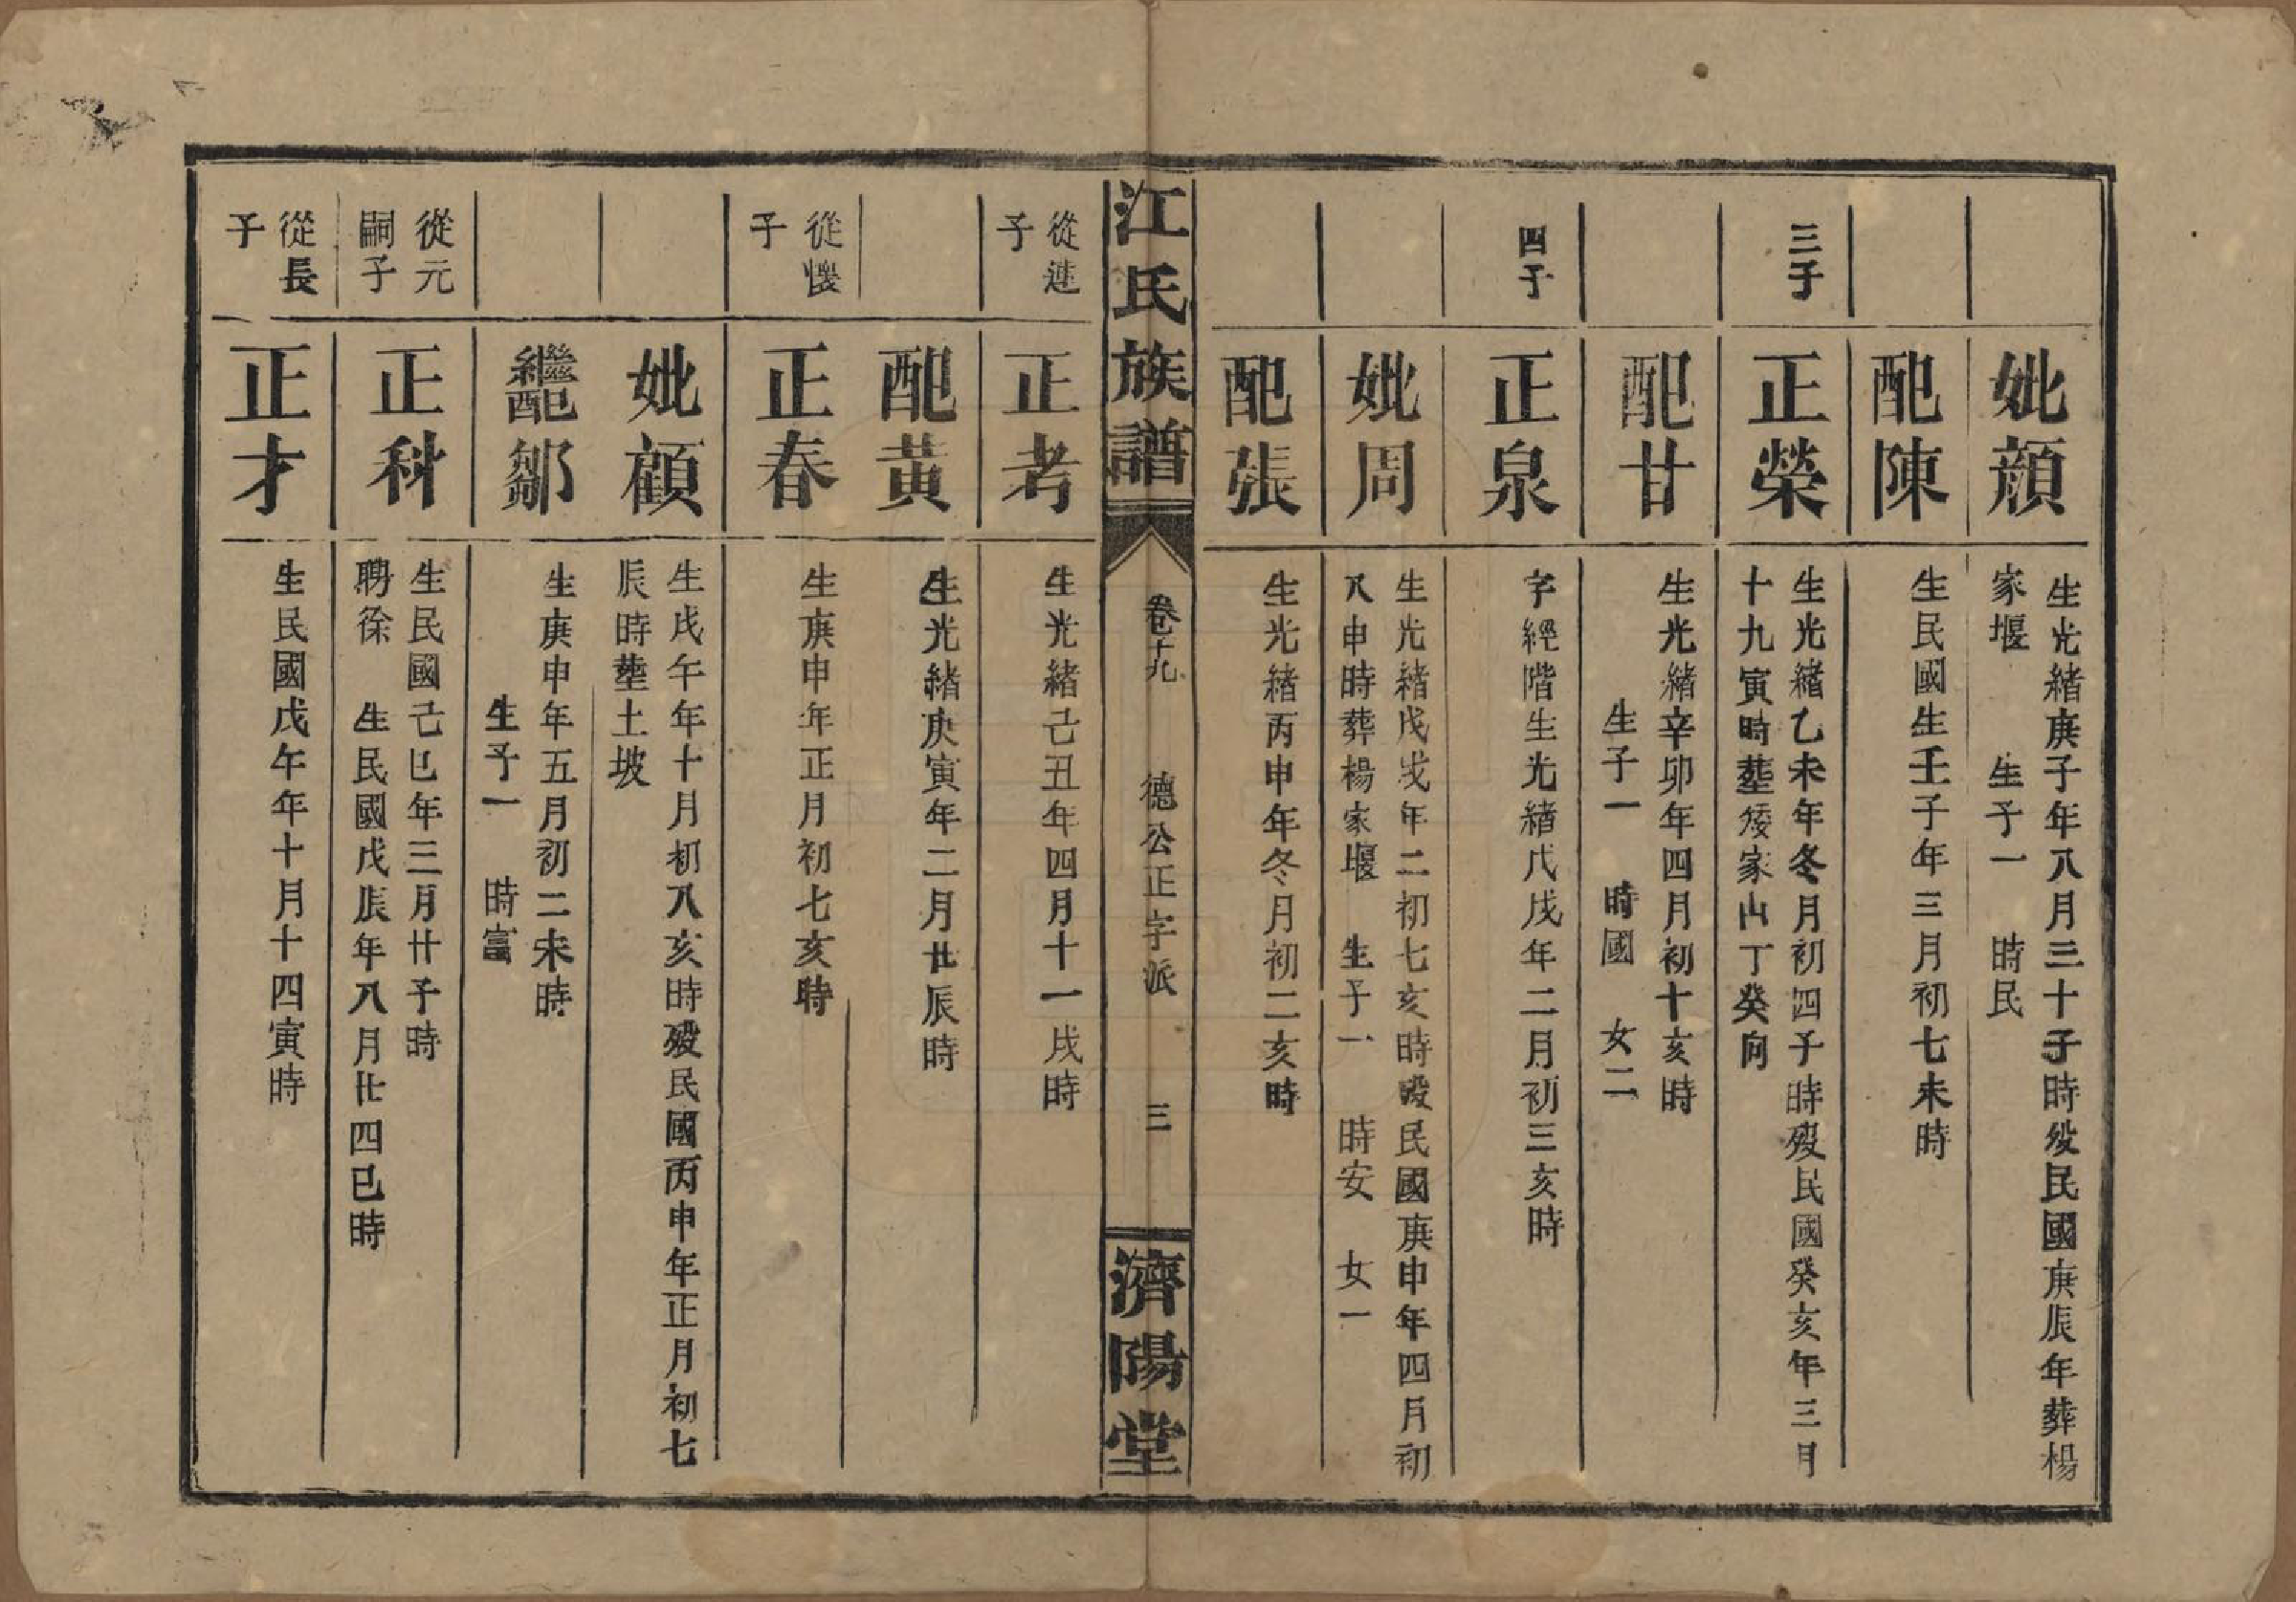 妣顔
生光緒庚子年八月三十子時殁民國庚辰年葬楊
家堰　生子一　時民
配陳
生民國生壬子年三月初七未時
三子
正榮
生光緒乙未年冬月初四子時殁民國癸亥年三月
十九寅時塟矮家山丁癸向
配甘
生光緒辛卯年四月初十亥時
生子一　時國　女二
四子
正泉
字經階生光緒戊戌年二月初三亥時
妣周
生光緒戊戌年二初七亥時殁民國庚申年四月初
八申時葬楊家堰　生子一　時安　女一
配張
生光緒丙申年冬月初二亥時
江氏族譜
卷十九　德公正字派　三
濟陽堂
從連
子
正考
生光緒己丑年四月十一戌時
配黄
生光緒庚寅年二月廿辰時
從懷
子
正春
生庚申年正月初七亥時
妣顧
生戊午年十月初八亥時殁民國丙申年正月初七
辰時塟土坡
繼配鄒
生庚申年五月初二未時
生子一　時富
從元
嗣子
正科
生民國己巳年三月廿子時
聘徐　生民國戊辰年八月廿四巳時
從長
子
正才
生民國戊午年十月十四寅時